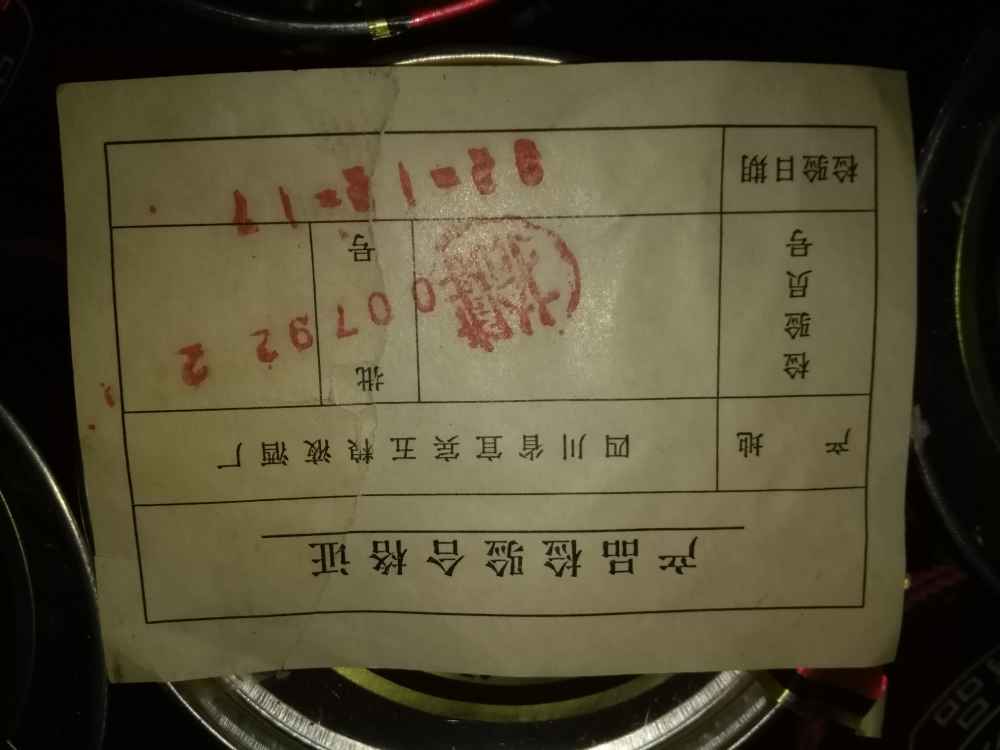 产品检验合格证
产地 四川省宜宾五粮液酒厂
检验员号 批号 007922
检验日期 92-12-17